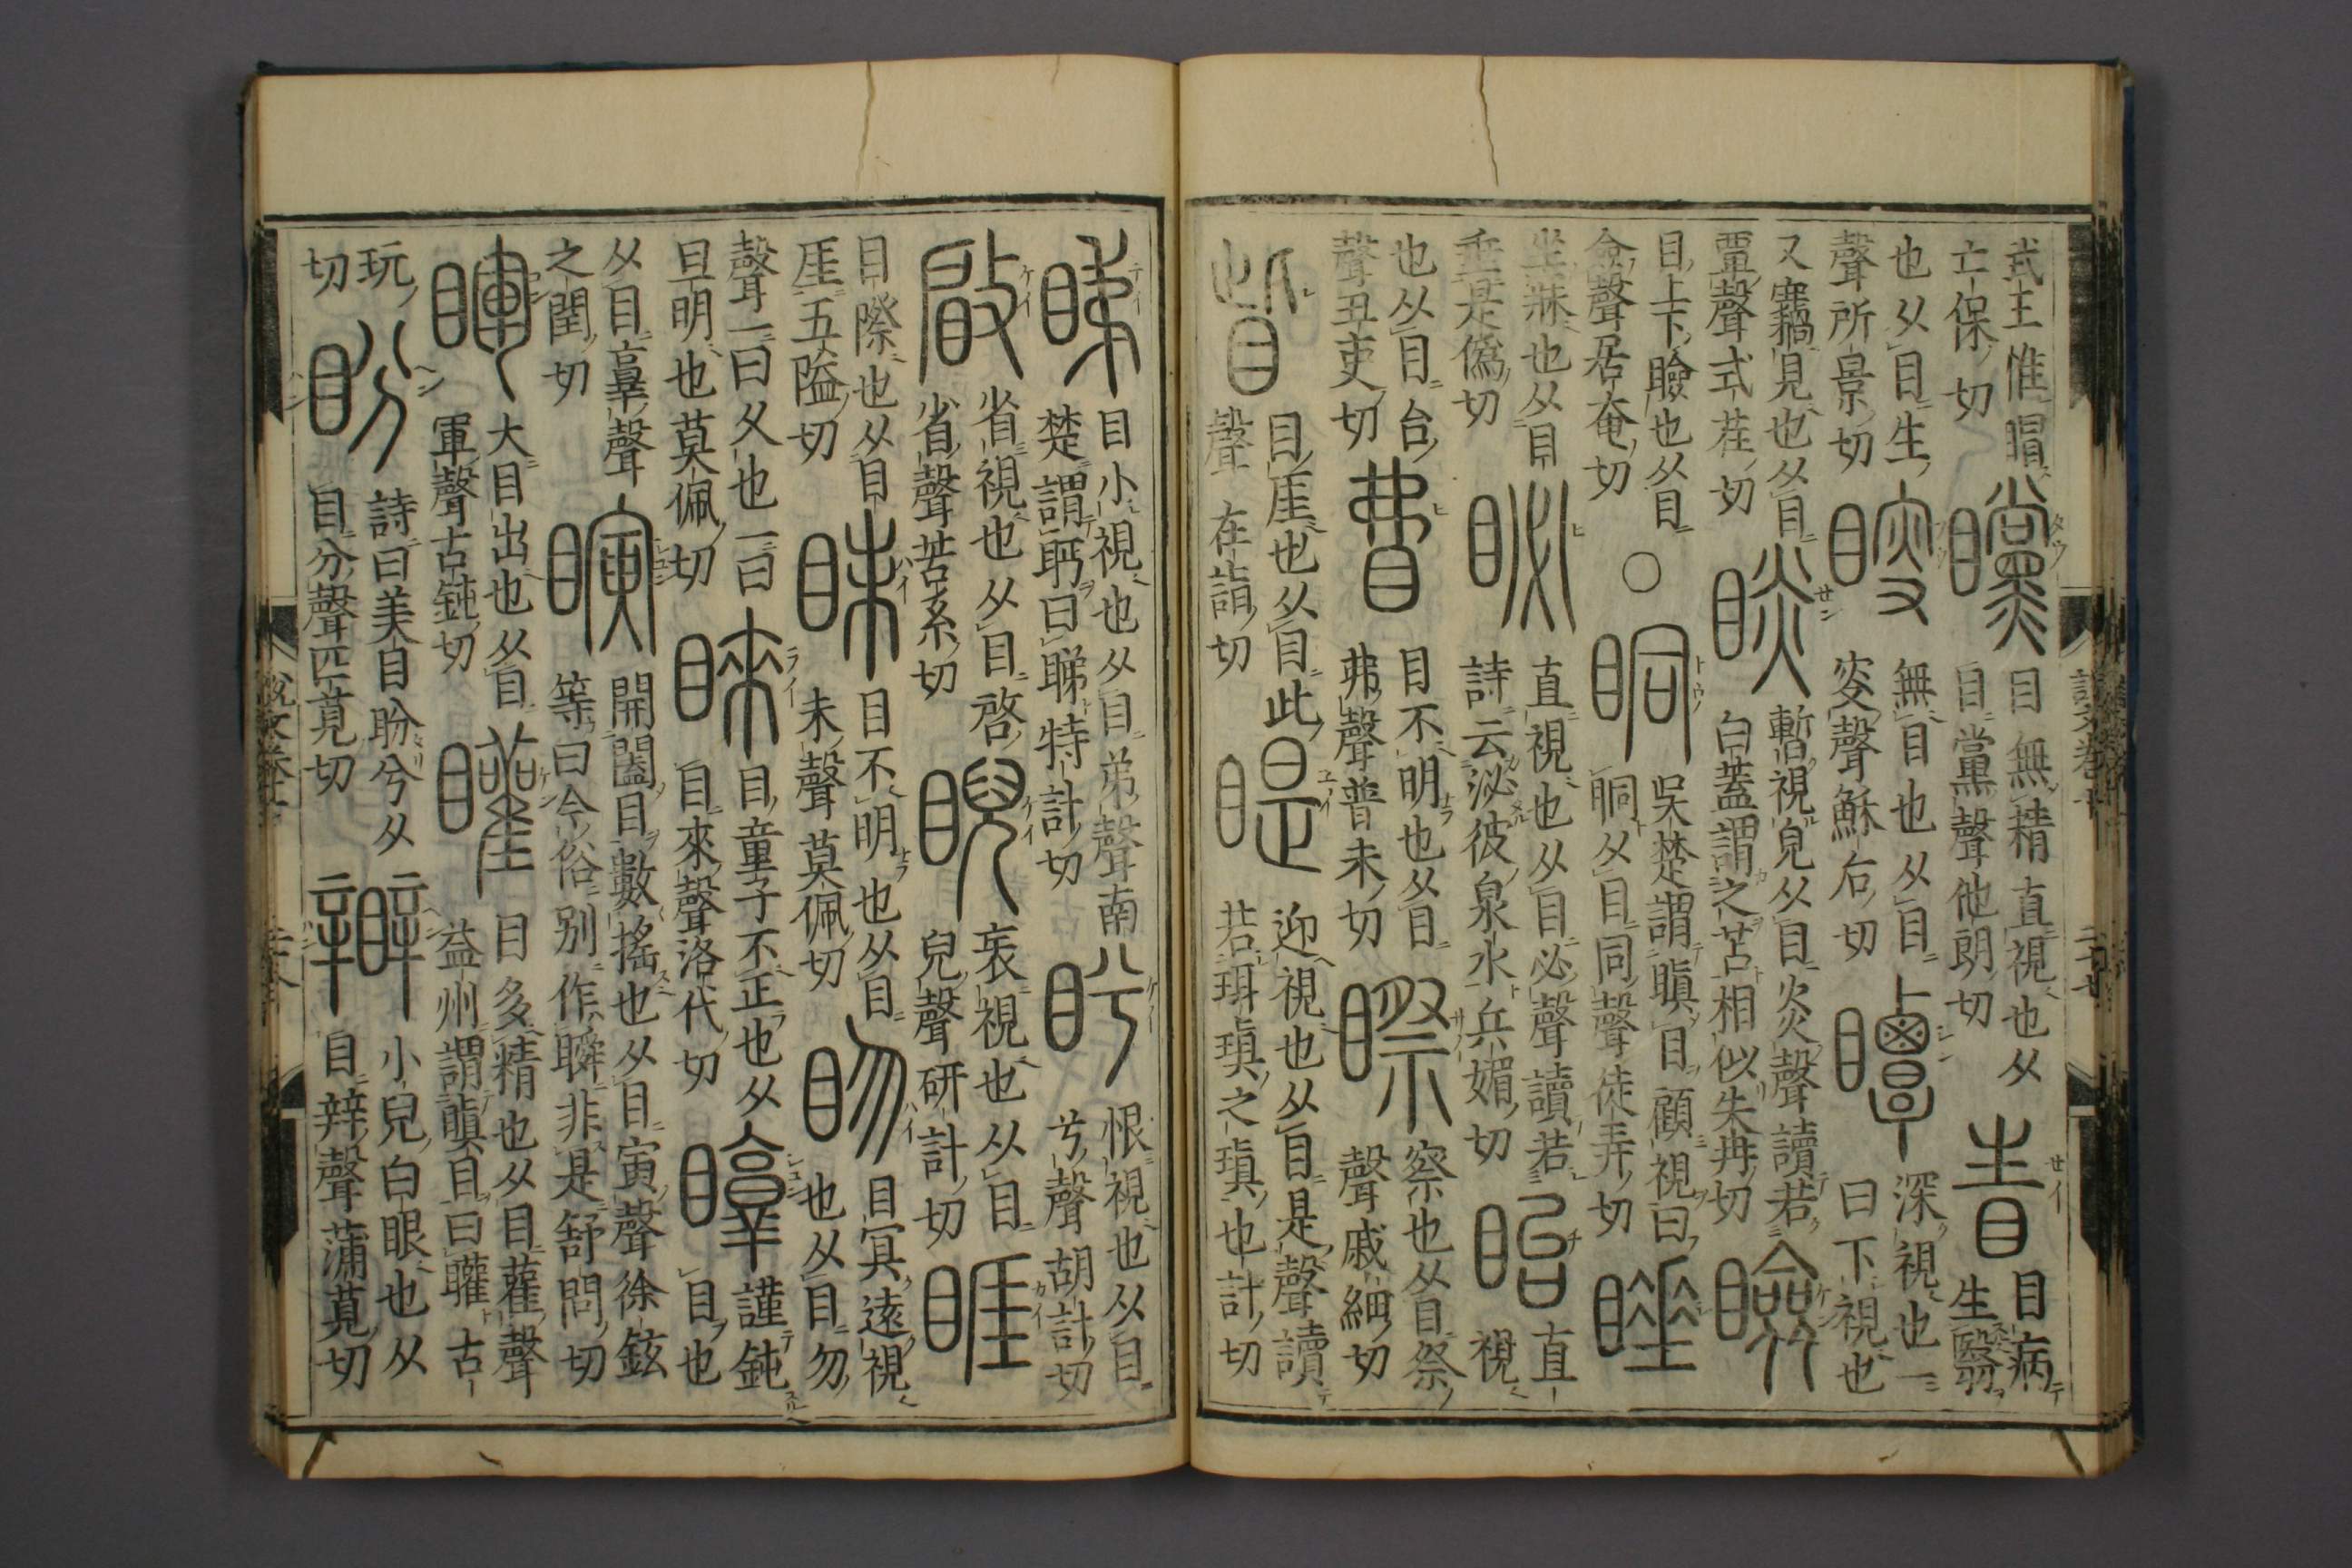 武王惟䀤
亡保切
矘
目無精直視也从
目黨聲他朗切
眚
目病
生翳
也从目生
聲所景切
瞍
無目也从目
叜聲穌后切
瞫
深視也一
曰下視也
又竊見也从目
覃聲式荏切
睒
暫視皃从目炎聲讀若
白蓋謂之苫相似失冉切
瞼
目上下瞼也从目
僉聲居奄切
○
眮
吳楚謂瞋目顧視曰
眮从目同聲徒弄切
睡
坐寐也从目
垂是僞切
䀣
直視也从目必聲讀若
詩云泌彼泉水兵媚切
眙
直
視
也从目台
聲丑吏切
𥄱
目不明也从目
弗聲普未切
䁟
察也从目祭
聲戚細切
眥
目厓也从目此
聲在詣切
睼
迎視也从目是聲讀
若珥瑱之瑱也計切
睇
目小視也从目弟聲南
楚謂眄曰睇特計切
盻
恨視也从目
兮聲胡計切
䁈
省視也从目啓
省聲苦系切
睨
衺視也从目
兒聲研計切
睚
目際也从目
厓五隘切
眛
目不明也从目
未聲莫佩切
𥄕
目冥遠視
也从目勿
聲一曰久也一曰
旦明也莫佩切
睞
目童子不正也从
目來聲洛代切
謹鈍
目也
从目𦎫聲
之閏切
瞚
開闔目數搖也从目寅聲徐鉉
等曰今俗別作瞬非是舒問切
睴
大目出也从目
軍聲古鈍切
矔
目多精也从目雚聲
益州謂瞋目曰矔古
玩
切
盼
詩曰美目盼兮从
目分聲匹莧切
小兒白眼也从
目辡聲蒲莧切